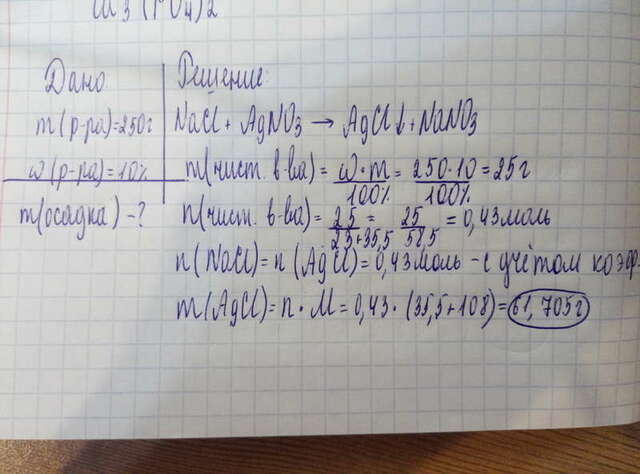 (PO4)2
Дано
m(р-ра)=250г
ω(р-ра)=10%
m(осадка)-?
Решение:
NaCl + AgNO3 → AgCl↓ + NaNO3
m(чист. в-ва) = ω·m/100% = 250·10/100% = 25г
n(чист. в-ва) = 25/23+35,5 = 25/58,5 = 0,43моль
n(NaCl) = n(AgCl) = 0,43моль - с учётом коэф.
m(AgCl) = n·M = 0,43·(35,5+108) = 61,705г